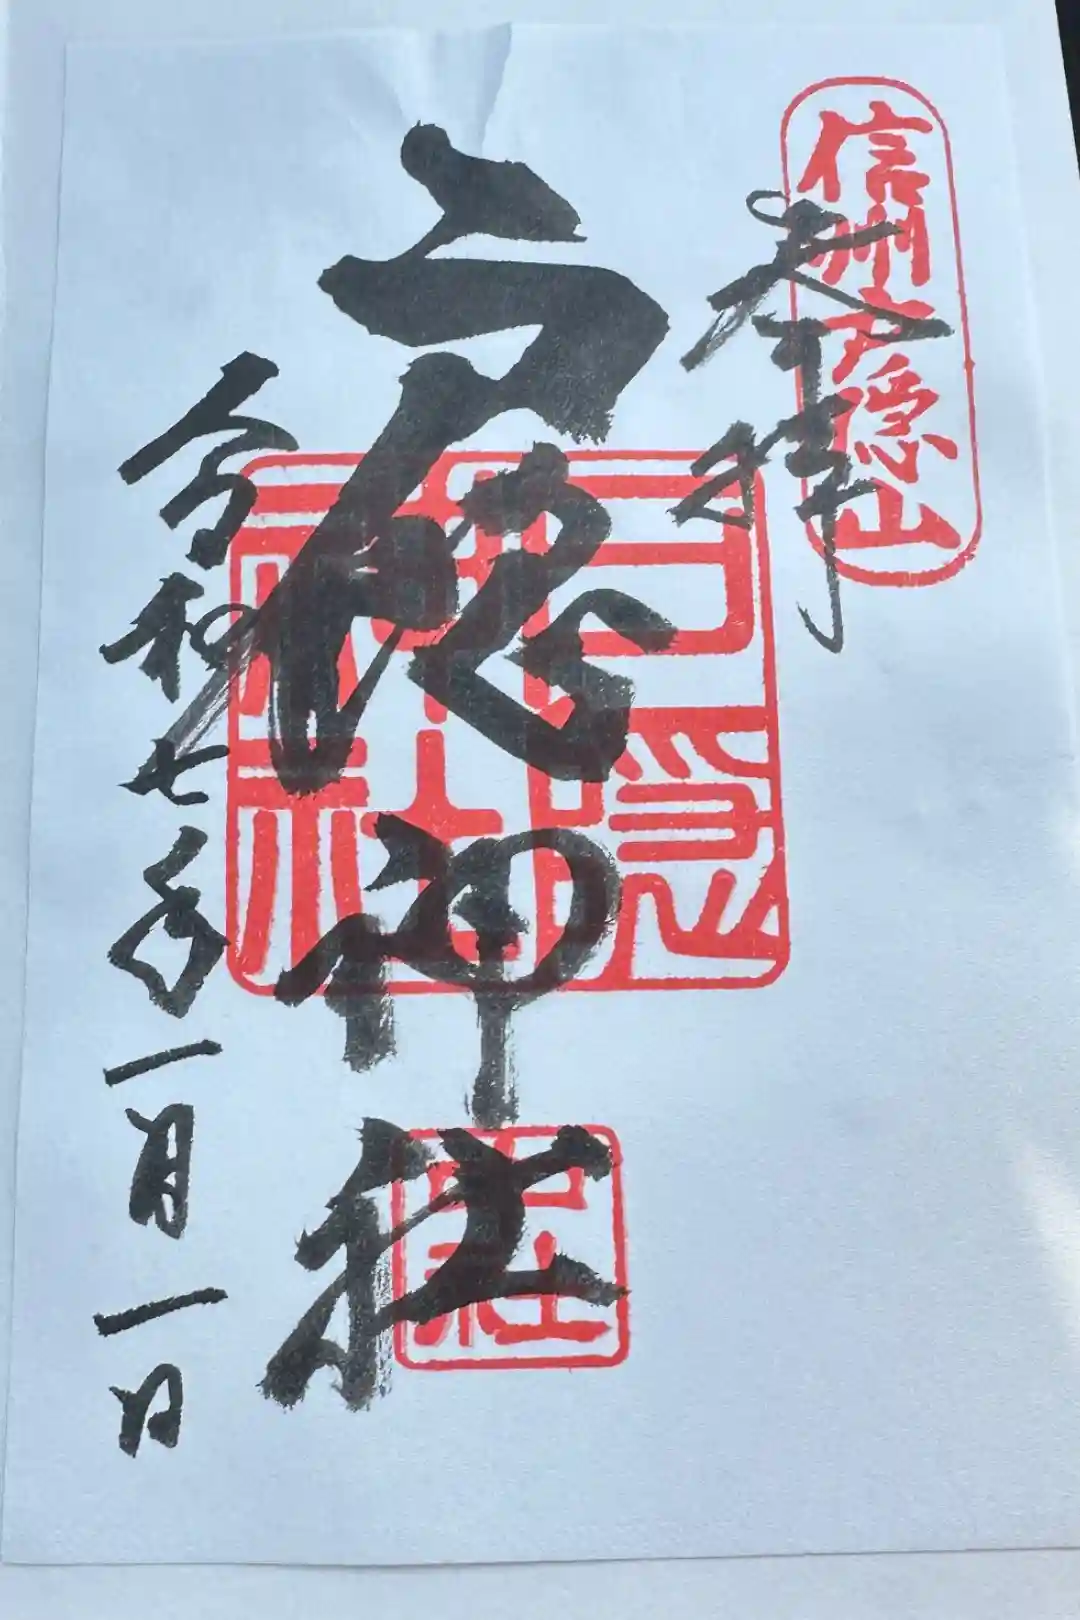 信州戸隠山
奉拝
戸隠神社
戸隠神社
中社
令和七年一月一日